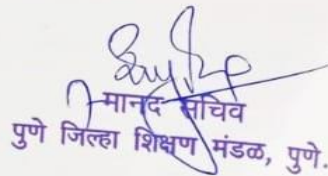 मानद सचिव
पुणे जिल्हा शिक्षण मंडळ, पुणे.